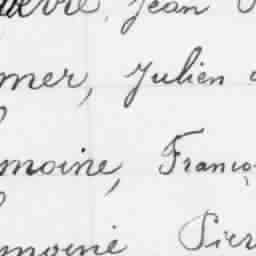 Jean
mer, Julien
moine, Franço
moine Pier